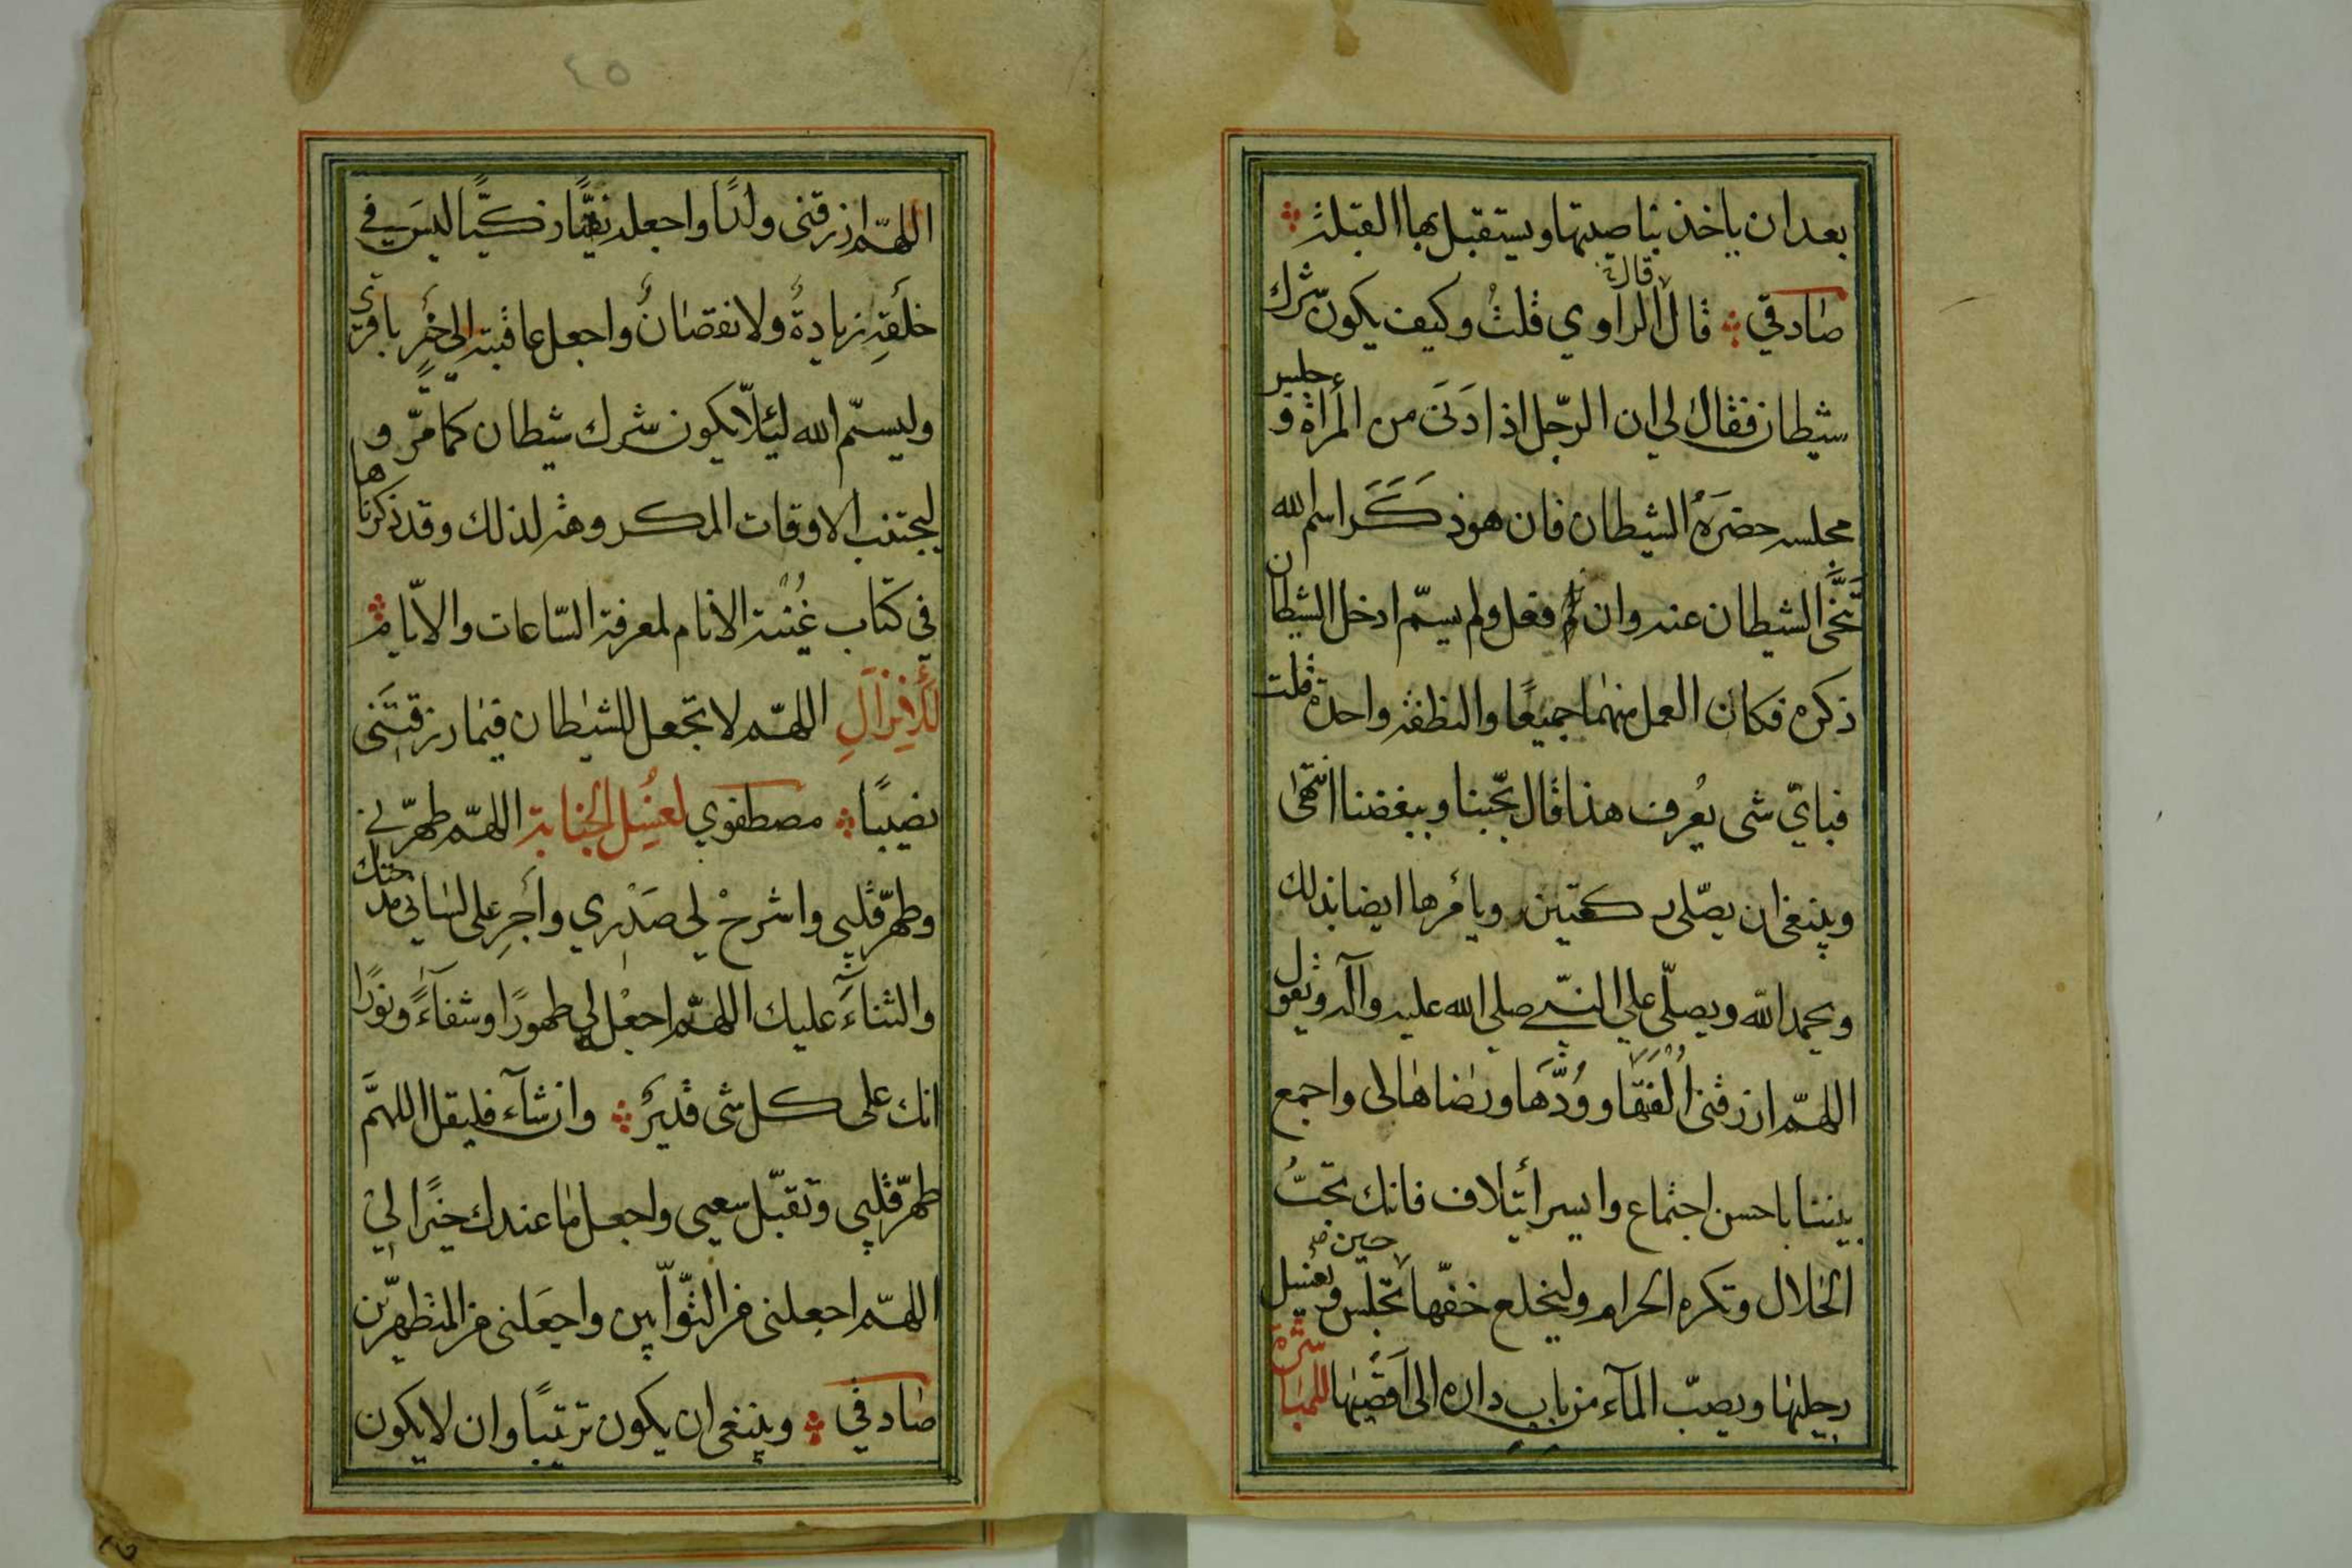 بعد ان ياخذ بناصيتها ويستقبل بها القبلة
صادقي قال الراوي قلت وكيف يكون شرك
شيطان فقال لي ان الرجل اذا دَنَى من المرأة و جلس
مجلسه حضرَهُ الشيطان فان هو ذَكَرَ اسم الله
تَنَحَّى الشيطان عنه وان فعل ولم يسمّ ادخل الشيطان
ذكره فكان العمل منهما جميعًا والنطفة واحدة قلت
فبايّ شى يُعرف هذا قال بحّبنا وببغضنا انتهى
وينبغى ان يصّلى ركعتين ويأمرها ايضا بذلك
ويحمد اللّه ويصلّى على النبىّ صلى الله عليه وآله ويقول
اللهمّ ارزقنى اُلْفَتَهَا ووُدَّهَا ورضاها لى واجمع
بيننا باحسن اجتماع وايسر أئتلاف فانك تحبُّ
الحلال وتكره الحرام وليخلع خفّها حين تجلس ويغسل
رجليها ويصبّ المآء من باب داره الى اَقصيها للمباشرة
اللهمّ ارزقنى ولدًا واجعله تقيًّا زكيًّا ليسَ في
خلقِهِ زيادةٌ ولا نقصانٌ واجعل عاقبته الى خيرٍ باقري
وليسمّ الله لئلّا يكون شرك شيطان كما مرّ و
ليجتنب الاوقات المكروهة لذلك وقد ذكرناها
في كتاب غُنْيَة الانام لمعرفة السّاعات والايّام
للأِنزالِ اللهمّ لا تجعل للشيطان فيما رزقتَنى
نصيبًا مصطفوي لغسل الجنابة اللهمّ طهّرني
وطهّر قلبى واشرحْ لي صَدْري وأَجرِ على لساني مدحتك
والثناءَ عليك اللهمّ اجعلْ لي طهورًا وشفاءً ونورًا
انك على كل شى قديرٌ وان شآء فليقل اللهمَّ
طهّر قلبى وتقبّل سعيى واجعل ما عندك خيرًا لي
اللهمّ اجعلنى من التوّابين واجعَلنى من المتطهرّين
صادقي وينبغى ان يكون ترتيبًا وان لا يكون